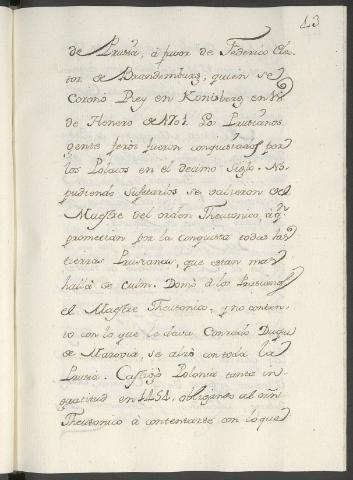 43
de Prusia, à favor de Federico Elec-
tor de Brandemburg, quien se
Coronò Rey en Konisberg en 18
de Henero de 1701. Lo Prusianos
gente feròs fueron conquistados por
los Polacos en el decimo siglo. No
pudiendo sujetarlos se valieron del
Maestre del orden Theutonico, à qn
prometian por la conquista todas las
tierras Prusianas, que estan mas
hallà de Culm. Domò a los Prusianos
el Maestre Theutonico, y no conten-
to con lo que le dava Conrado Duque
de Mazovia, se alzò con toda la
Prusia. Castigò Polonia tanta in-
gratitud en 1454, obligando al orn
Theutonico à contentarse con lo que